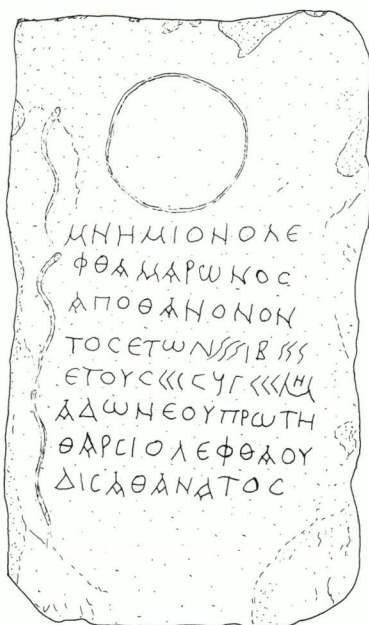 ΜΝΗΜΙΟΝΟΛΕ
ΦΘΑΜΑΡΩΝΟC
ΑΠΟΘΑΝΟΝΟΝ
ΤΟCΕΤΩΝ ΙΒ
ΕΤΟΥC CΥΓ ΜΗ
ΑΔΩΝΕΟΥΠΡΩΤΗ
ΘΑΡCΙΟΛΕΦΘΑΟΥ
ΔΙCΑΘΑΝΑΤΟC